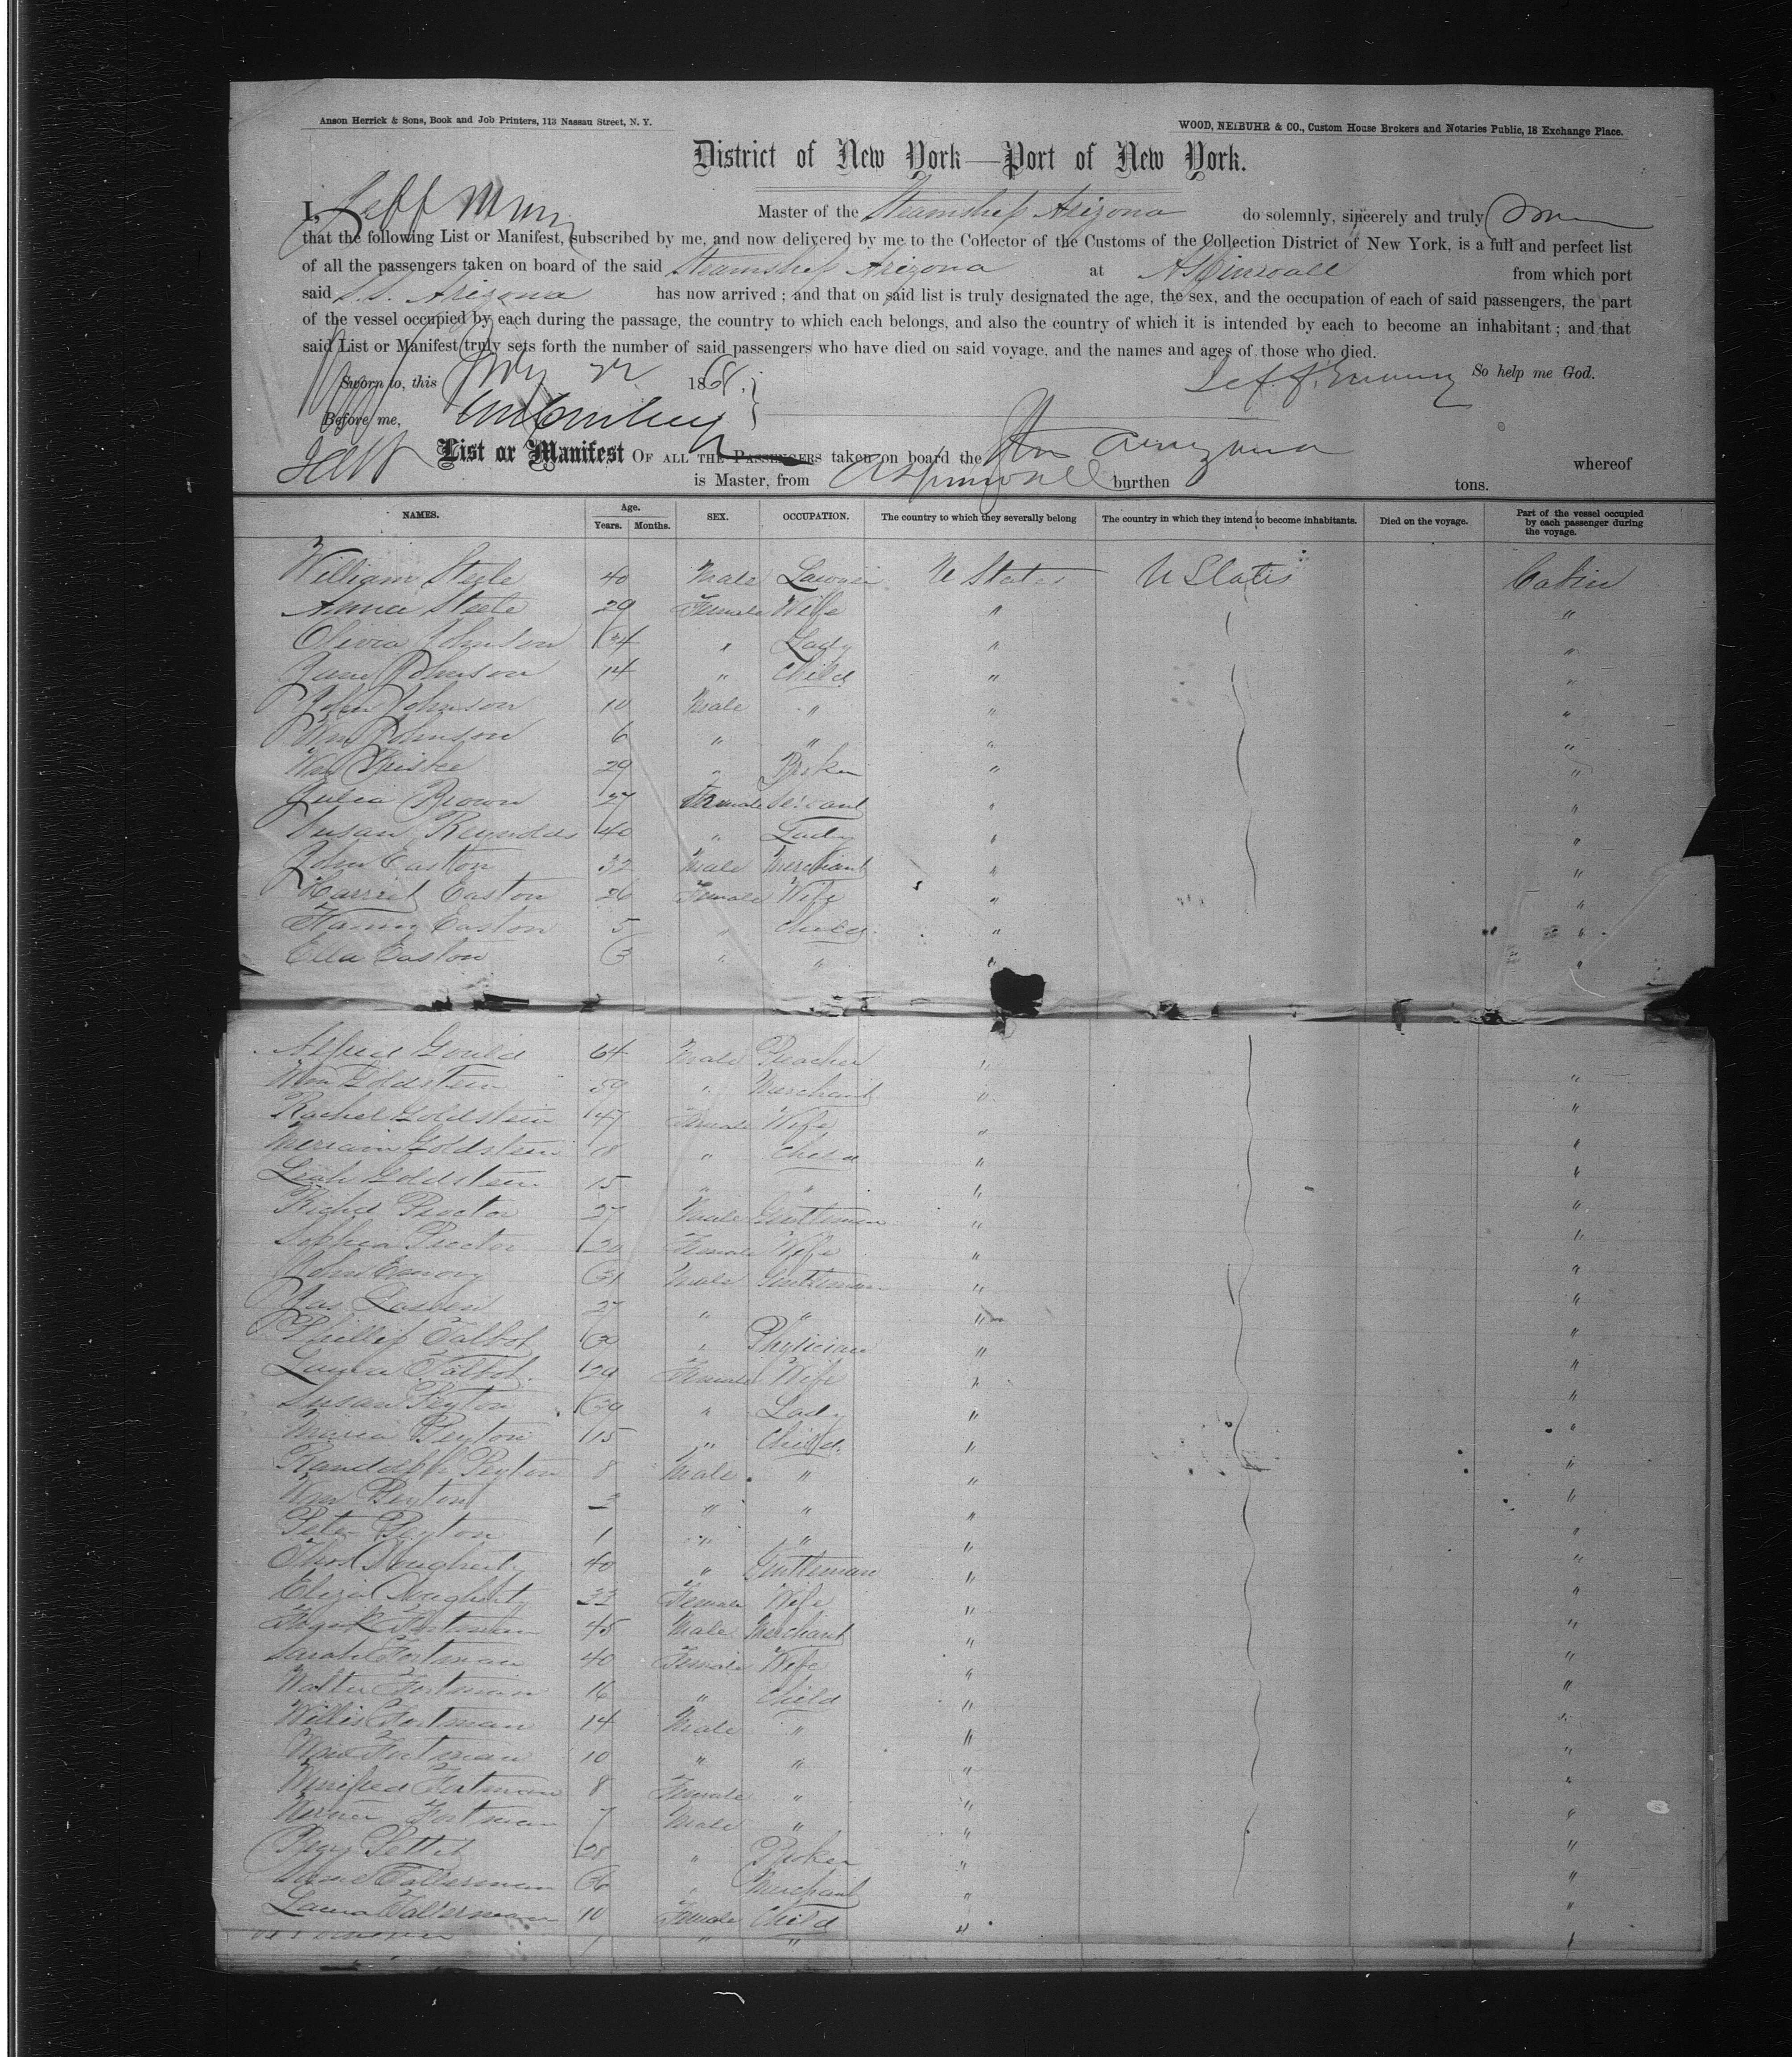 Anson Herrick & Sons, Book and Job Printers, 113 Nassau Street, N. Y.
WOOD, NEIBUHR & CO., Custom House Brokers and Notaries Public, 18 Exchange Place.
District of New York—Port of New York.
I, Master of the Steamship Arizona do solemnly, sincerely and truly
that the following List or Manifest, subscribed by me, and now delivered by me to the Collector of the Customs of the Collection District of New York, is a full and perfect list
of all the passengers taken on board of the said Steamship Arizona at Aspinwall from which port
said S.S. Arizona has now arrived ; and that on said list is truly designated the age, the sex, and the occupation of each of said passengers, the part
of the vessel occupied by each during the passage, the country to which each belongs, and also the country of which it is intended by each to become an inhabitant ; and that
said List or Manifest truly sets forth the number of said passengers who have died on said voyage, and the names and ages of those who died.
So help me God.
Sworn to, this 22 1868.
Before me,
List or Manifest OF ALL THE PASSENGERS taken on board the Arizona whereof
is Master, from Aspinwall burthen tons.
NAMES. Age. Years. Months. SEX. OCCUPATION. The country to which they severally belong The country in which they intend to become inhabitants. Died on the voyage. Part of the vessel occupied by each passenger during the voyage.
William Steele 40 Male U States U States Cabin
Anna Steele 29 Female Wife " "
Olivia Johnson 34 " Lady " "
Jane Johnson 14 " Child " "
John Johnson 10 Male " " "
Wm Johnson 6 " " " "
Wm 29 " Broker " "
Julia Brown 27 Female Servant " "
Susan Reynolds 40 " Lady " "
John Easton 32 Male Merchant " "
Harriet Easton 26 Female Wife " "
Fanny Easton 5 " Child " "
Ella Easton 3 " " " "
Alfred Gould 64 Male Preacher " "
Wm Goldstein 59 " Merchant " "
Rachel Goldstein 47 Female Wife " "
Merriam Goldstein 18 " Child " "
Leah Goldstein 15 " " " "
Richd Proctor 27 Male Gentleman " "
Sophia Proctor 20 Female Wife " "
John Emory 31 Male Gentleman " "
Jas 27 " " " "
Phillip Talbot 30 " Physician " "
Laura Talbot 29 Female Wife " "
Susan Peyton 39 " Lady " "
Maria Peyton 15 " Child " "
Randolph Peyton 8 Male " " "
Wm Peyton 3 " " " "
Peter Peyton 1 " " " "
Thos Dougherty 40 " Gentleman " "
Eliza Dougherty 33 Female Wife " "
Fortman 45 Male Merchant " "
Sarah Fortman 40 Female Wife " "
Walter Fortman 16 " Child " "
Willis Fortman 14 Male " " "
Wm Fortman 10 " " " "
Winifred Fortman 8 Female " " "
Fortman 7 Male " " "
28 " Broker " "
36 " Merchant " "
Laura 10 Female Child " "